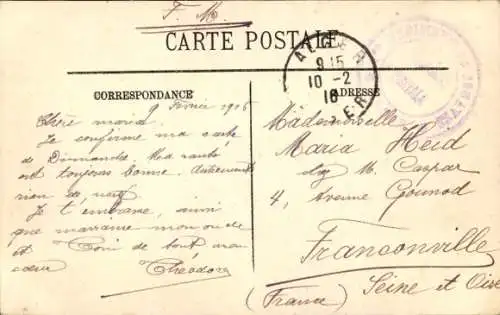 F. M.
CARTE POSTALE
CORRESPONDANCE
ADRESSE
ALGER
9 15
10 - 2
16
9 Février 1916
Chère Maria
Je confirme ma carte
de Dimanche. Ma santé
est toujours bonne. Autrement
rien de neuf
Je t'embrasse, ainsi
que marraine mon oncle
et Toni de tout mon
cœur
Théodore
Mademoiselle
Maria Heid
chez M. Caspar
4, Avenue Gounod
Franconville
Seine et Oise
(France)